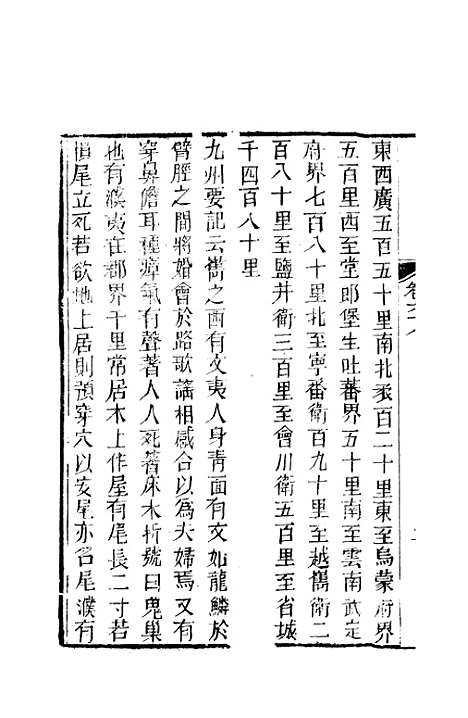 東西廣五百五十里南北袤百二十里東至烏蒙府界
五百里西至堂郎堡生吐蕃界五十里南至雲南武定
府界七百八十里北至寧番衛百九十里至越嶲衛二
百八十里至鹽井衛三百里至會川衛五百里至省城
千四百八十里
九州要記云嶲之西有文夷人身青面有文如龍鱗於
臂脛之間將婚會於路歌謠相感合以為夫婦焉又有
穿鼻儋耳種瘴氣有聲著人人死著床木折號曰鬼巢
也有濮夷在郡界千里常居木上作屋有尾長二寸若
損尾立死若欲地上居則預穿穴以安尾亦名尾濮有